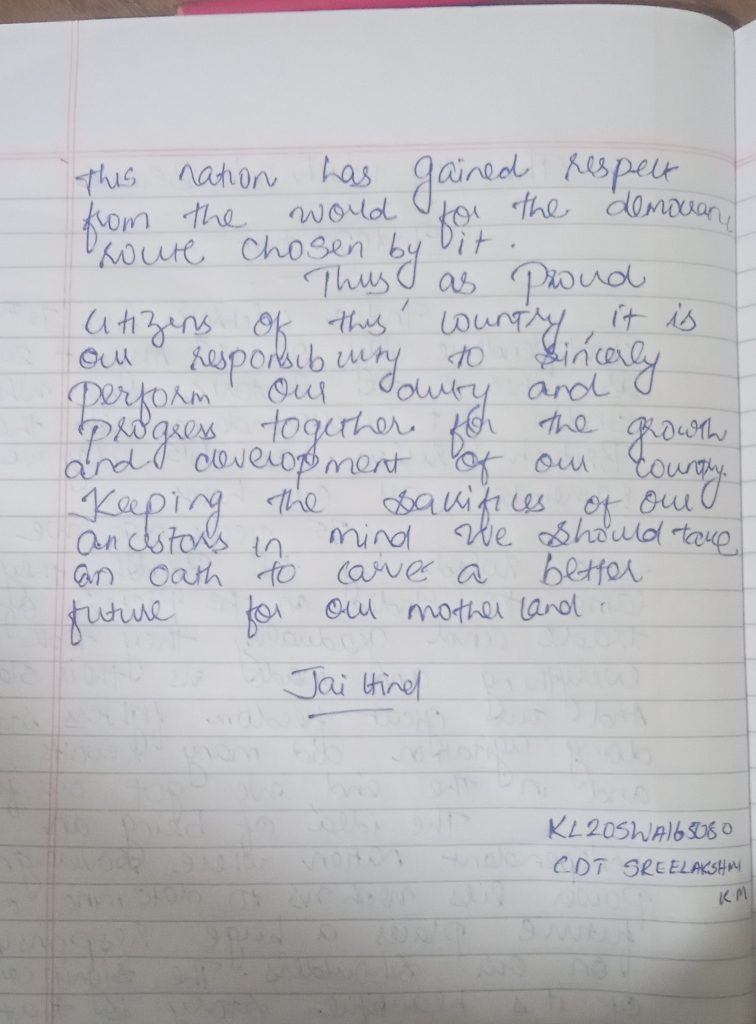 This nation has gained respect
from the world for the democratic
route chosen by it.
Thus as proud
citizens of this country, it is
our responsibility to sincerly
perform our duty and
progress together for the growth
and development of our country.
Keeping the sacrifices of our
ancestors in mind we should take
an oath to carve a better
future for our motherland.
Jai Hind
KL20SWA165080
CDT SREELAKSHMI
KM